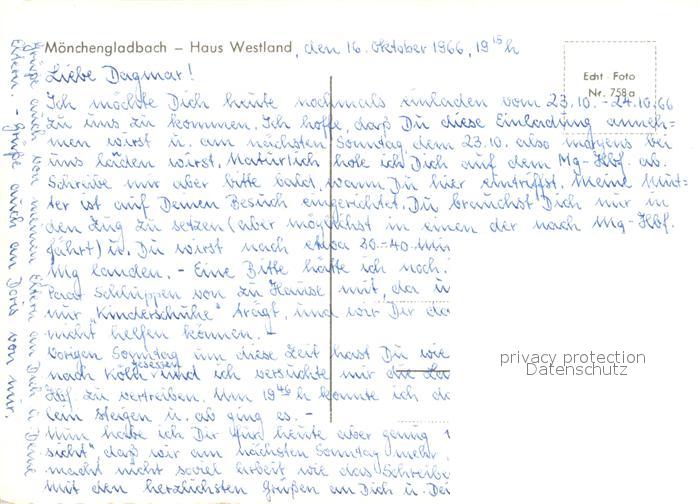 Mönchengladbach – Haus Westland, den 16. Oktober 1966, 19 15 h
Echt - Foto
Nr. 758a
Liebe Dagmar!
Ich möchte Dich heute nochmals einladen vom 23.10.-24.10.66
zu uns zu kommen. Ich hoffe, daß Du diese Einladung anneh=
men wirst u. am nächsten Sonntag, dem 23.10. also morgens bei
uns läuten wirst. Natürlich hole ich Dich auf dem Mg-Hbf. ab.
Schreibe mir aber bitte bald, wann Du hier eintriffst. Meine Mut=
ter ist auf Deinen Besuch eingerichtet. Du brauchst Dich nur in
den Zug zu setzen (aber möglichst in einen der nach Mg-Hbf.
fährt) u. Du wirst nach etwa 30-40 Min
Mg landen. - Eine Bitte hätte ich noch.
Paar Schluppen von zu Hause mit, da
nur "Kinderschuhe" trägt, und wir Dir da
nicht helfen können. -
Vorigen Sonntag um diese Zeit hast Du wie
gesessen
nach Köln und ich versuchte mir die
Hbf. zu vertreiben. Um 19 46 h konnte ich
lein steigen u. ab ging es. -
Nun habe ich Dir für heute aber genug
sicht", daß wir am nächsten Sonntag mehr
macht nicht soviel Arbeit wie das Schreibe
mit den herzlichsten Grüßen an Dich u. Dei
Grüße auch von meinen Eltern an Dich u. Deine
Eltern. - Grüße auch an Doris von mir.
privacy protection
Datenschutz